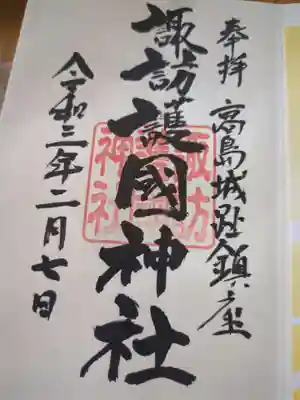 奉拝 高島城趾鎮座
諏訪護國神社
令和三年二月七日